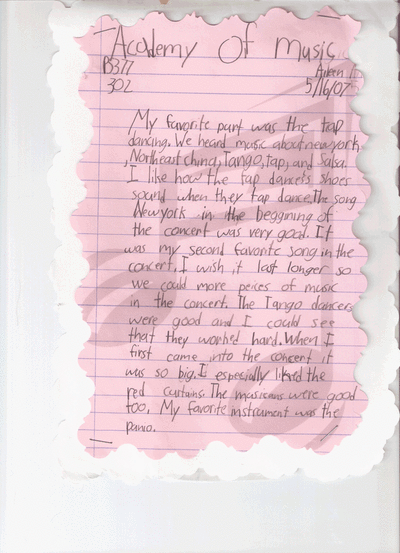 Academy Of Music
B377 Aileen
302 5/16/07
My favorite part was the tap
dancing. We heard music about newyork,
Northeast china, Tango, tap, and Salsa.
I like how the tap dancers shoes
sound when they tap dance. The song
Newyork in the beggining of
the concert was very good. It
was my second favorite song in the
concert. I wish it last longer so
we could more peices of music
in the concert. The Tango dancers
were good and I could see
that they worked hard. When I
first came into the concert it
was so big. I especially liked the
red curtains. The musicans were good
too. My favorite instrument was the
panio.